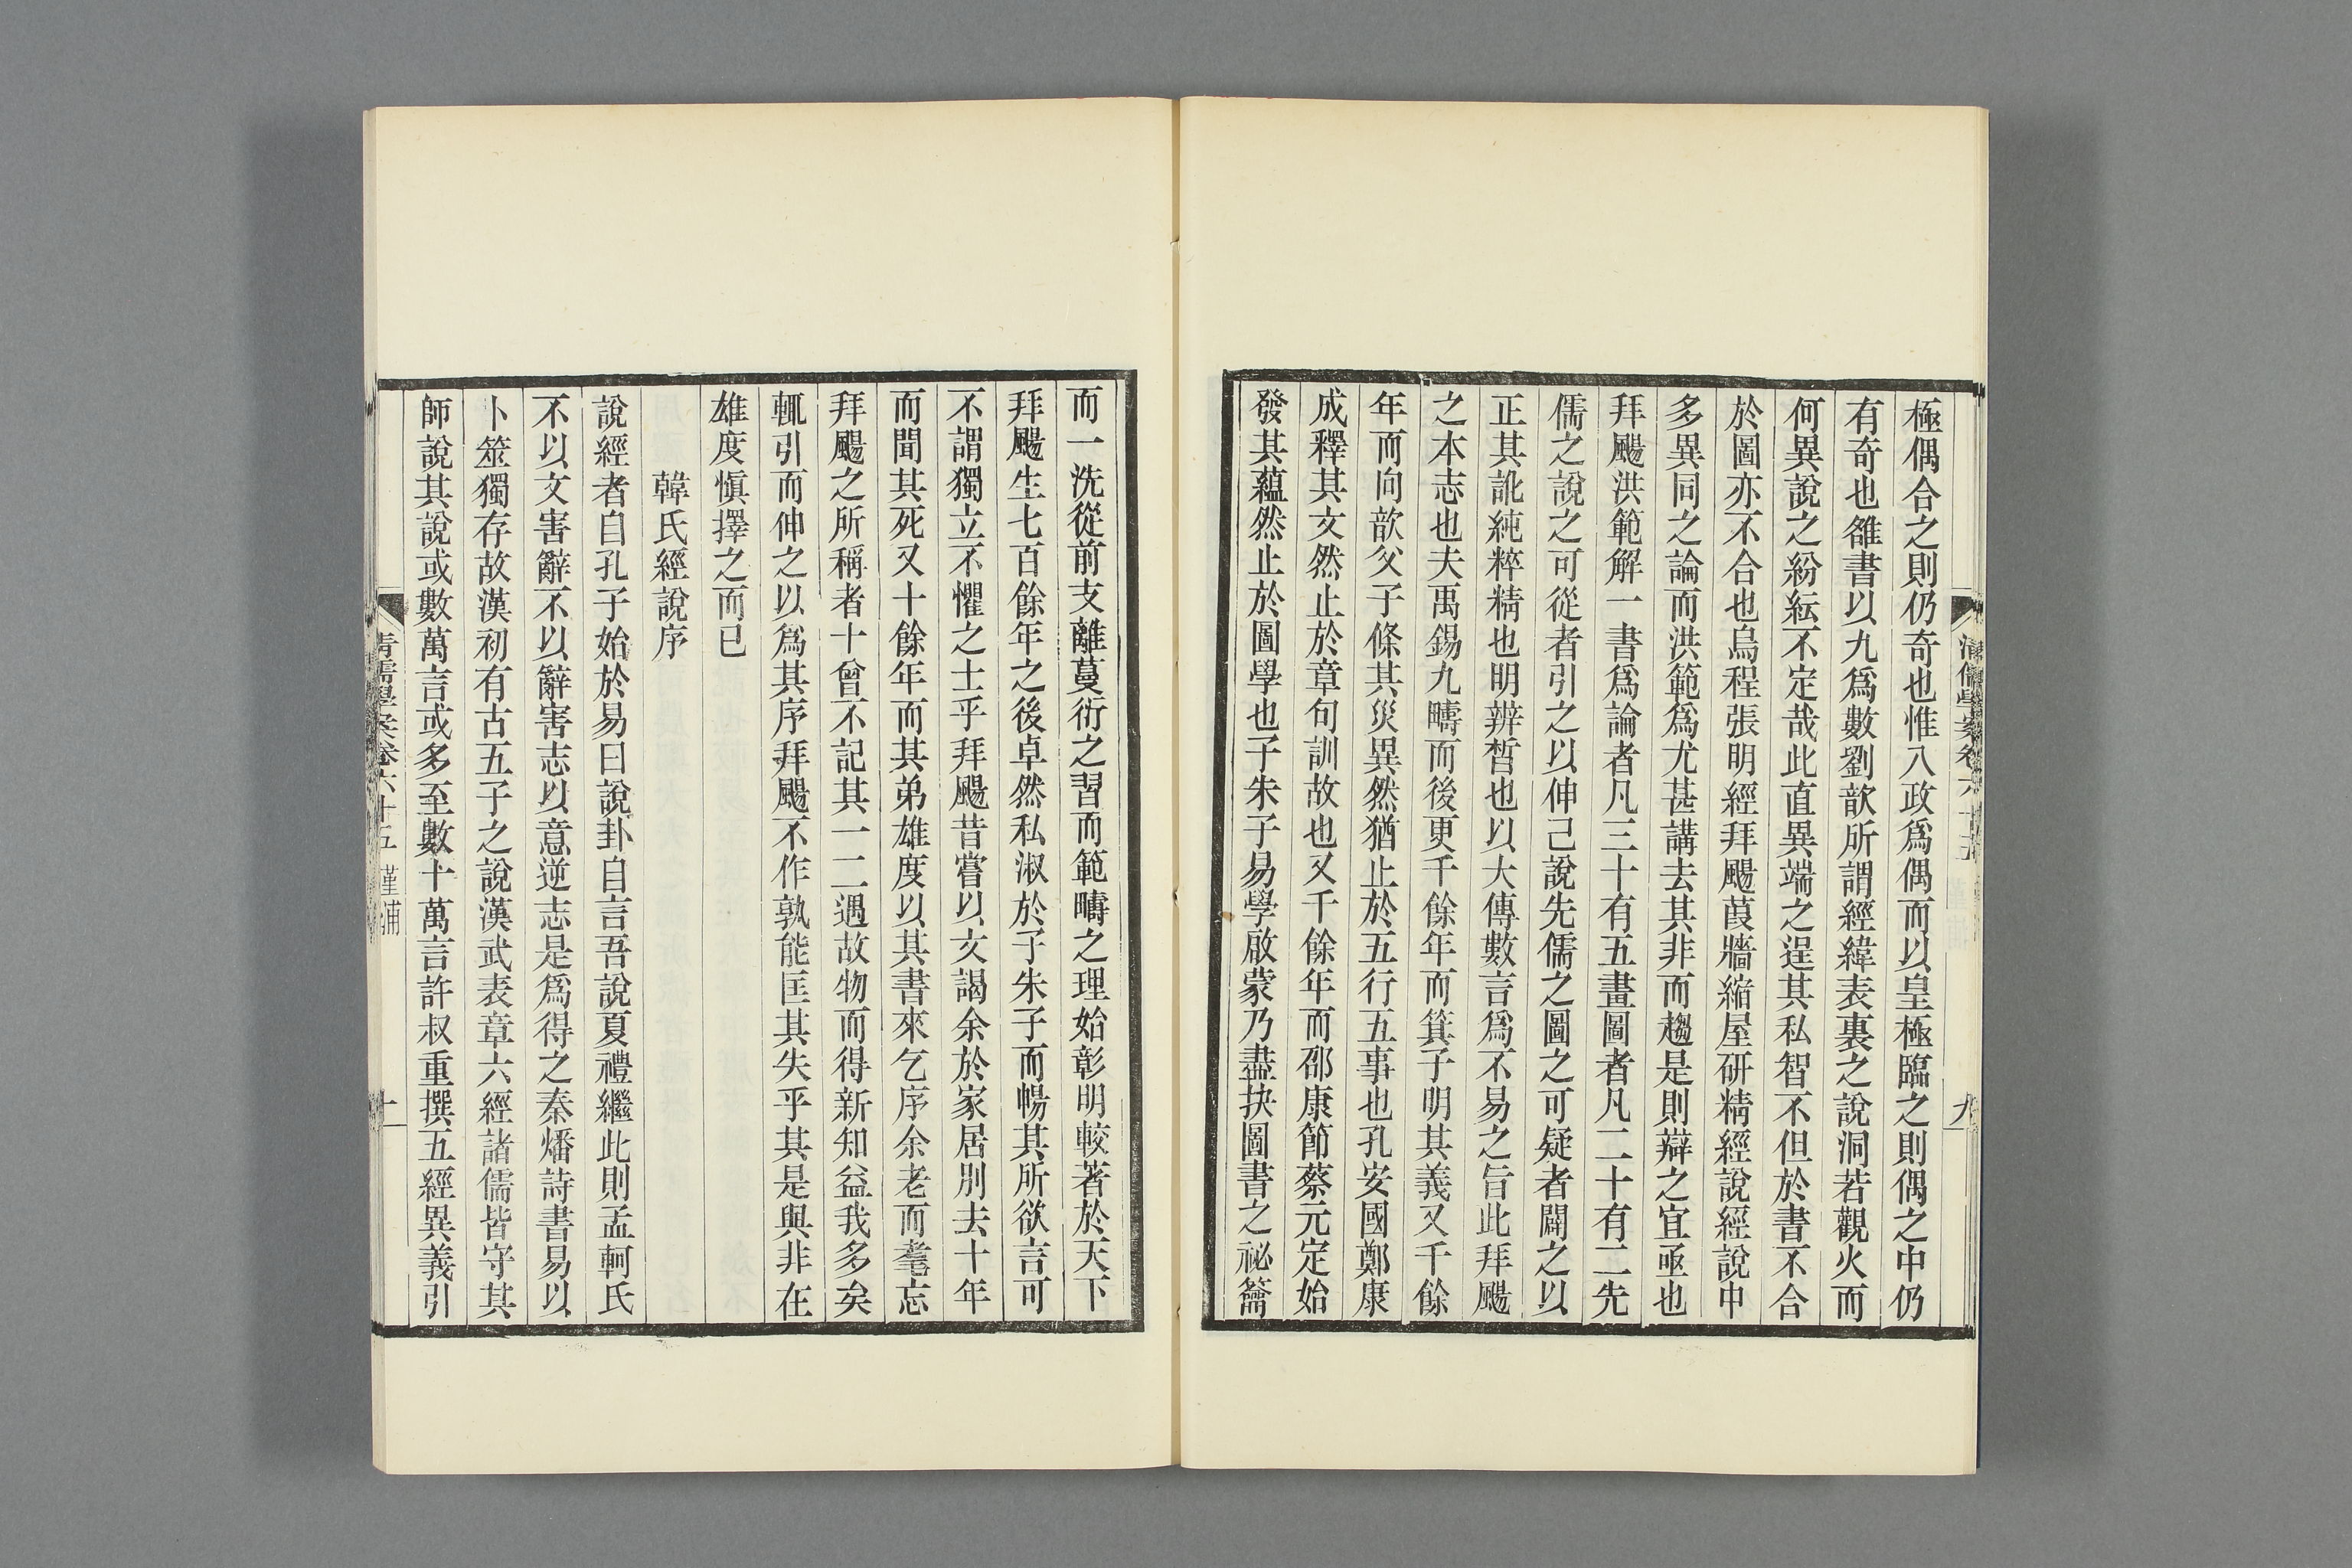 極偶合之則仍奇也惟八政爲偶而以皇極臨之則偶之中仍
有奇也雒書以九爲數劉歆所謂經緯表裏之說洞若觀火而
何異說之紛紜不定哉此直異端之逞其私智不但於書不合
於圖亦不合也烏程張明經拜颺葭牆縮屋研精經說經說中
多異同之論而洪範爲尤甚講去其非而趨是則辯之宜亟也
拜颺洪範解一書爲論者凡三十有五畫圖者凡二十有二先
儒之說之可從者引之以伸己說先儒之圖之可疑者闢之以
正其訛純粹精也明辨晳也以大傳數言爲不易之旨此拜颺
之本志也夫禹錫九疇而後更千餘年而箕子明其義又千餘
年而向歆父子條其災異然猶止於五行五事也孔安國鄭康
成釋其文然止於章句訓故也又千餘年而邵康節蔡元定始
發其蘊然止於圖學也子朱子易學啟蒙乃盡抉圖書之祕籥
清儒學案卷六十五
九
而一洗從前支離蔓衍之習而範疇之理始彰明較著於天下
拜颺生七百餘年之後卓然私淑於子朱子而暢其所欲言可
不謂獨立不懼之士乎拜颺昔嘗以文謁余於家居別去十年
而聞其死又十餘年而其弟雄度以其書來乞序余老而耄忘
拜颺之所稱者十曾不記其一二遇故物而得新知益我多矣
輒引而伸之以爲其序拜颺不作孰能匡其失乎其是與非在
雄度愼擇之而已
韓氏經說序
說經者自孔子始於易曰說卦自言吾說夏禮繼此則孟軻氏
不以文害辭不以辭害志以意逆志是爲得之秦燔詩書易以
卜筮獨存故漢初有古五子之說漢武表章六經諸儒皆守其
師說其說或數萬言或多至數十萬言許叔重撰五經異義引
清儒學案卷六十五 堇浦
十